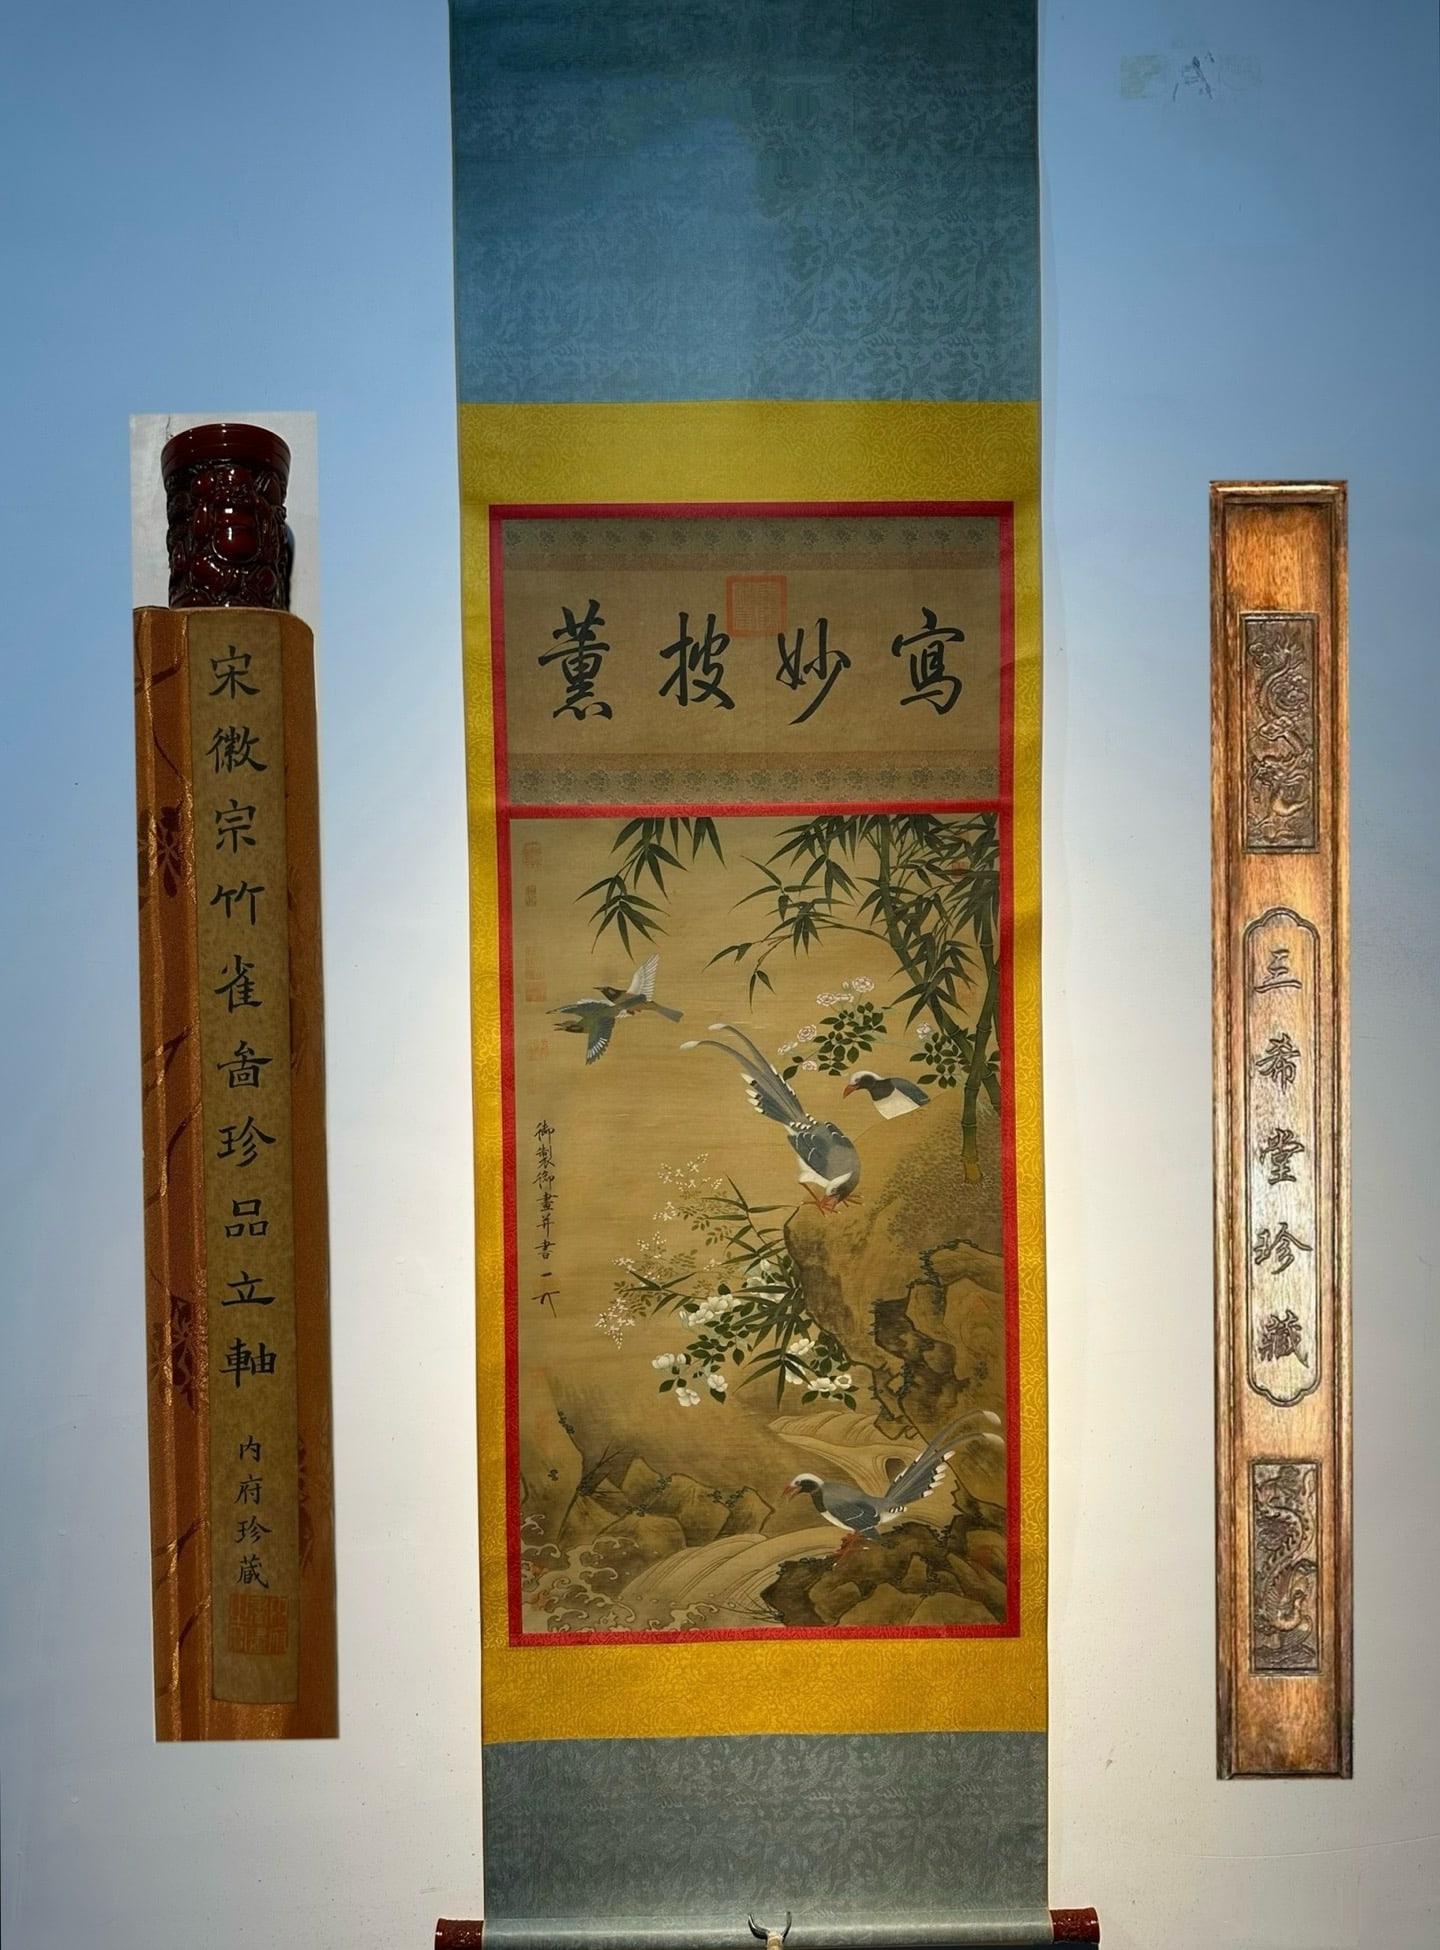 宋徽宗竹雀嗇珍品立軸
内府珍藏
寫妙披薰
御製御畫并書
三希堂珍藏